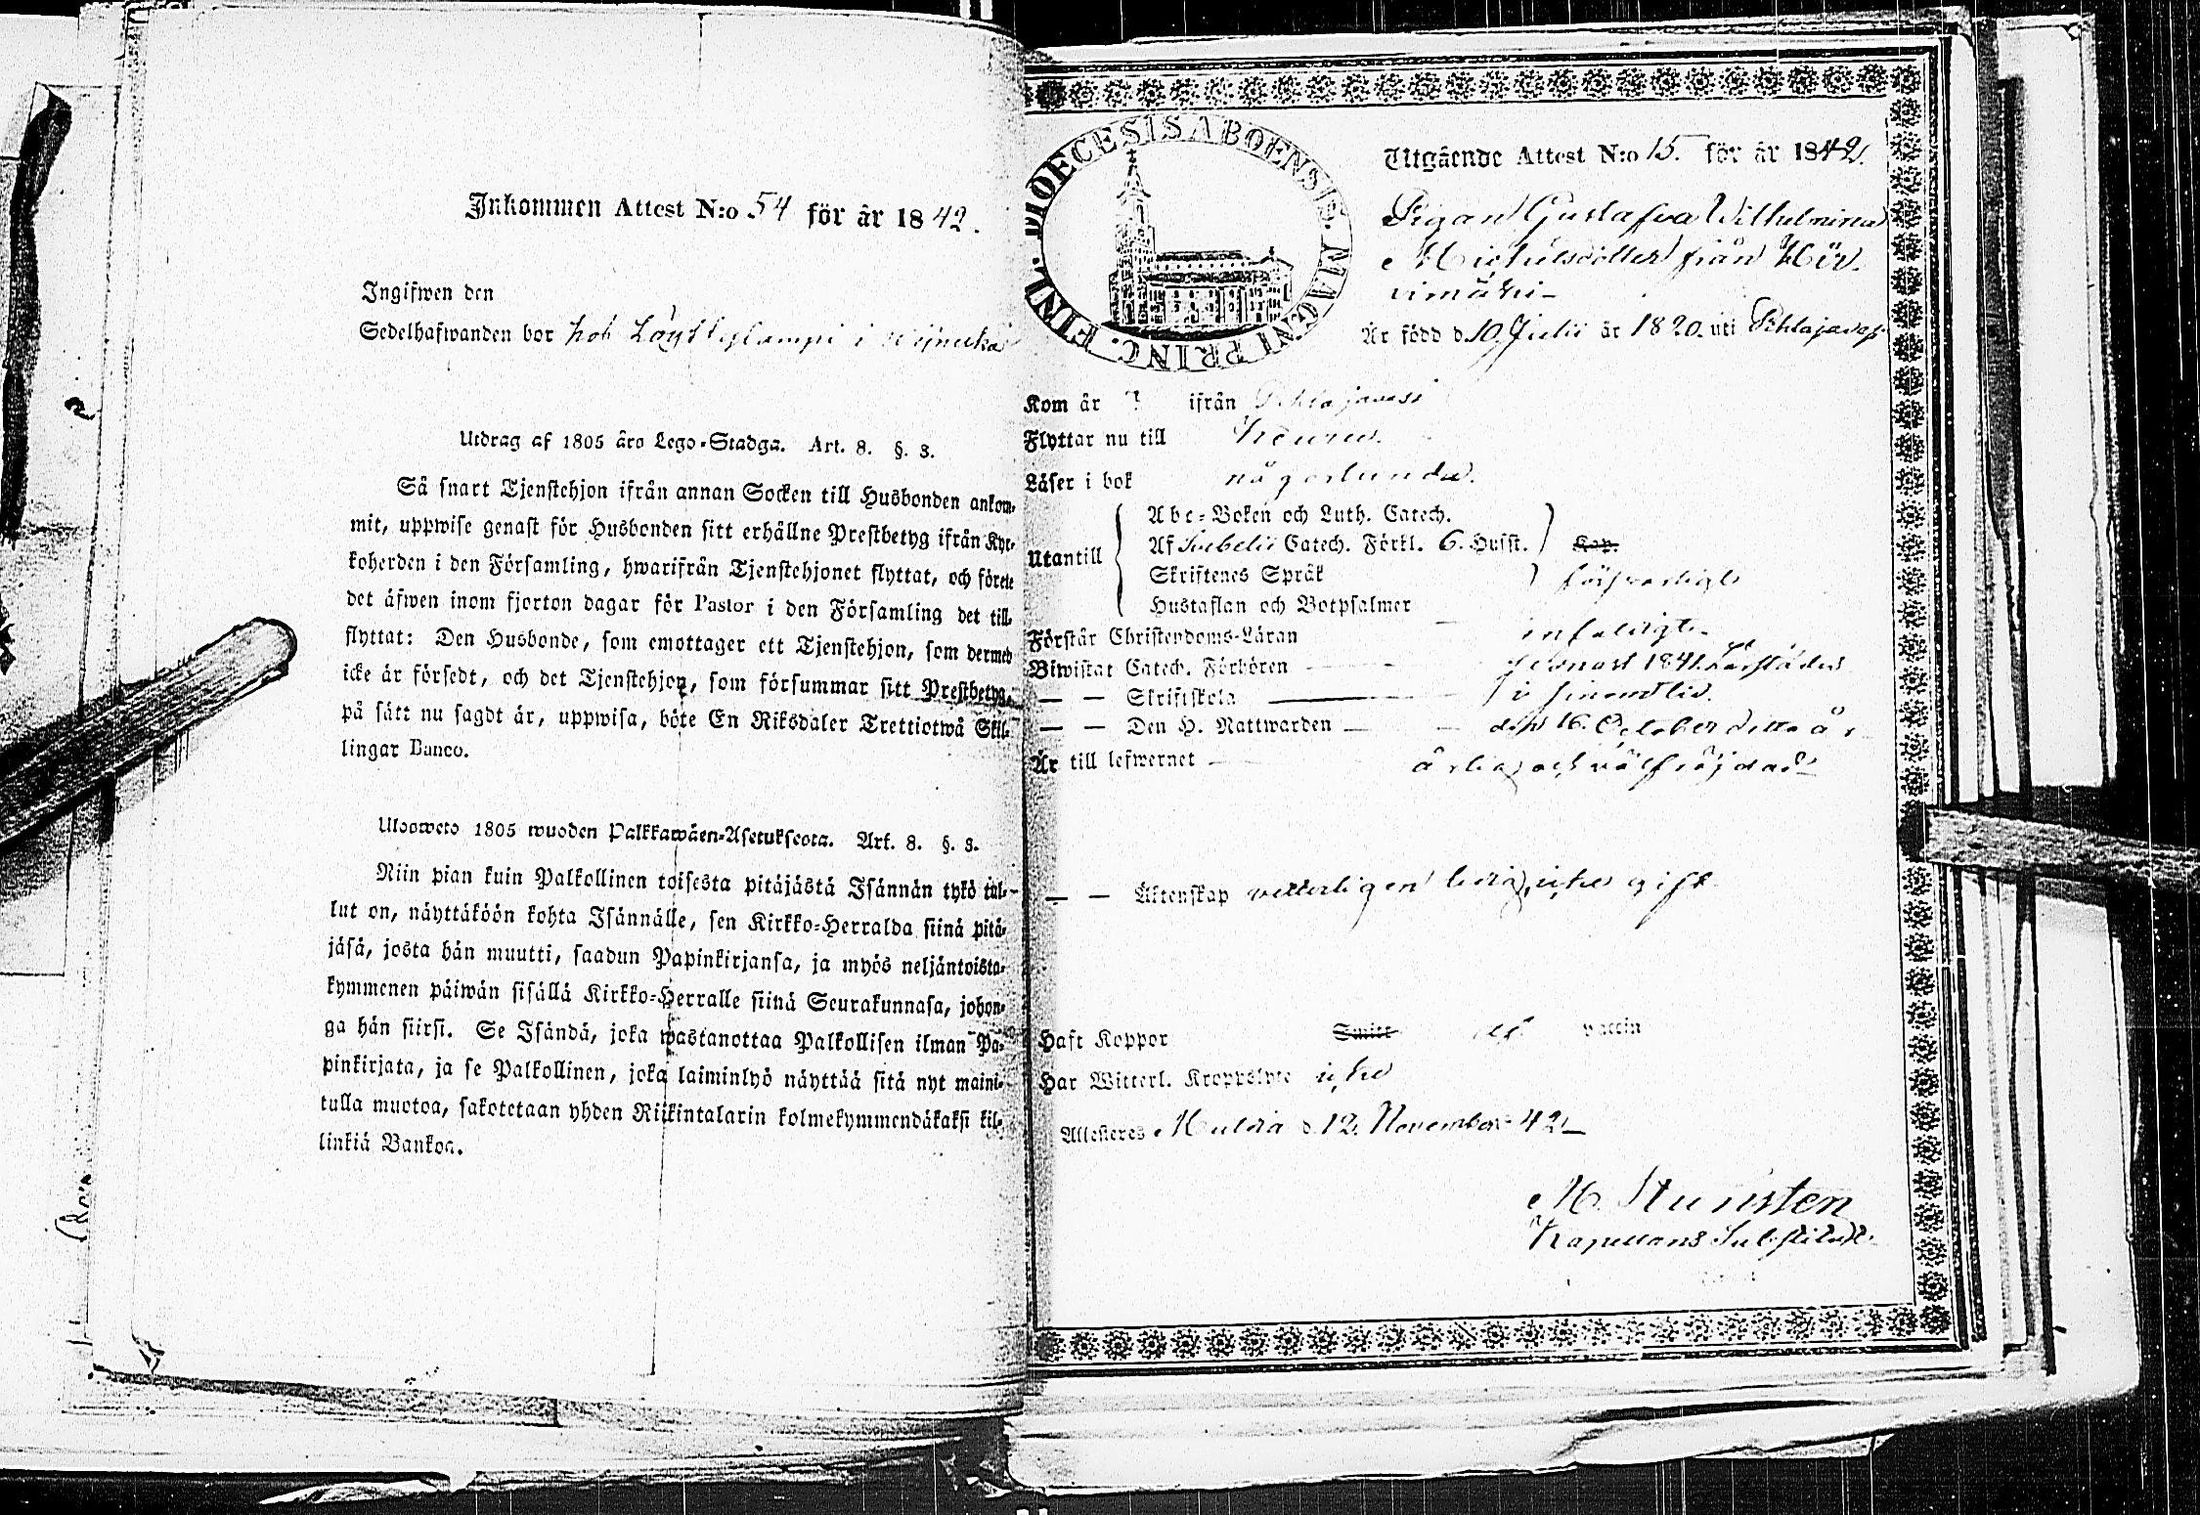 Inkommen Attest N:o 54 för år 1842.
Ingifwen den
Sedelhafwanden bor hos Löyttylampi i
Utdrag af 1805 åro Lego-Stadga. Art. 8. §. 3.
Så snart Tjenstehjon ifrån annan Socken till Husbonden ankom-
mit, uppwise genast för Husbonden sitt erhållne Prestbetyg ifrån Kyr-
koherden i den Församling, hwarifrån Tjenstehjonet flyttat, och förete
det äfwen inom fjorton dagar för Pastor i den Församling det till-
flyttat: Den Husbonde, som emottager ett Tjenstehjon, som dermed
icke är försedt, och det Tjenstehjon, som försummar sitt Prestbetyg,
på sätt nu sagdt är, uppwisa, böte En Riksdaler Trettiotwå Skil-
lingar Banco.
Ulosweto 1805 wuoden Palkkawäen-Asetuksesta. Art. 8. §. 3.
Niin pian kuin Palkollinen toisesta pitäjästä Isännän tykö tul-
lut on, näyttäköön kohta Isännälle, sen Kirkko-Herralda siinä pitä-
jäsä, josta hän muutti, saadun Papinkirjansa, ja myös neljäntoista-
kymmenen päiwän sisällä Kirkko-Herralle siinä Seurakunnasa, johon-
ga hän siirsi. Se Isändä, joka wastanottaa Palkollisen ilman Pa-
pinkirjata, ja se Palkollinen, joka laiminlyö näyttää sitä nyt maini-
tulla muotoa, sakotetaan yhden Riikintalarin kolmekymmendäkaksi kil-
linkiä Bankoa.
DIOECESIS ABOENSIS. MAGNI PRINC. FINL.
Utgående Attest N:o 15. för år 1842.
Pigan Gustafva Wilhelmina
Michelsdotter från Kär-
vimäki
Är född d. 10 Julii år 1820. uti Pihlajaves
Kom år ? ifrån Pihlajavesi
Flyttar nu till Keuru.
Läser i bok någorlunda.
Utantill
Abc-Boken och Luth. Catech.
Af Svebelii Catech. Förkl. 6. Husst. Kap.
Skriftenes Språk försvarligt
Hustaflan och Botpsalmer
Förstår Christendoms-Läran enfaldigt
Biwistat Catech. Förhören senast 1841.
— — Skriftskola i sinom tid.
— — Den H. Nattwarden den 16. October detta år
Är till lefwernet ärlig och välfräjdad
— — Äktenskap vetterligen ledig, icke gift
Haft Koppor Smitt vaccin
Har Witterl. Kroppslyte icke
Attesteras Multia d. 12. November 42
M. Stenisten
Kapellans Substitut.